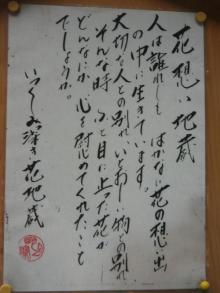 花想い地蔵
人は誰れしも はかない花の想い出
の中に生きています。
大切な人との別れ いとおしい物との別れ
そんな時 ふと目に止った花が
どんなにか 心を慰めてくれたこと
でしょうか。
いつくしみ深き 花地蔵